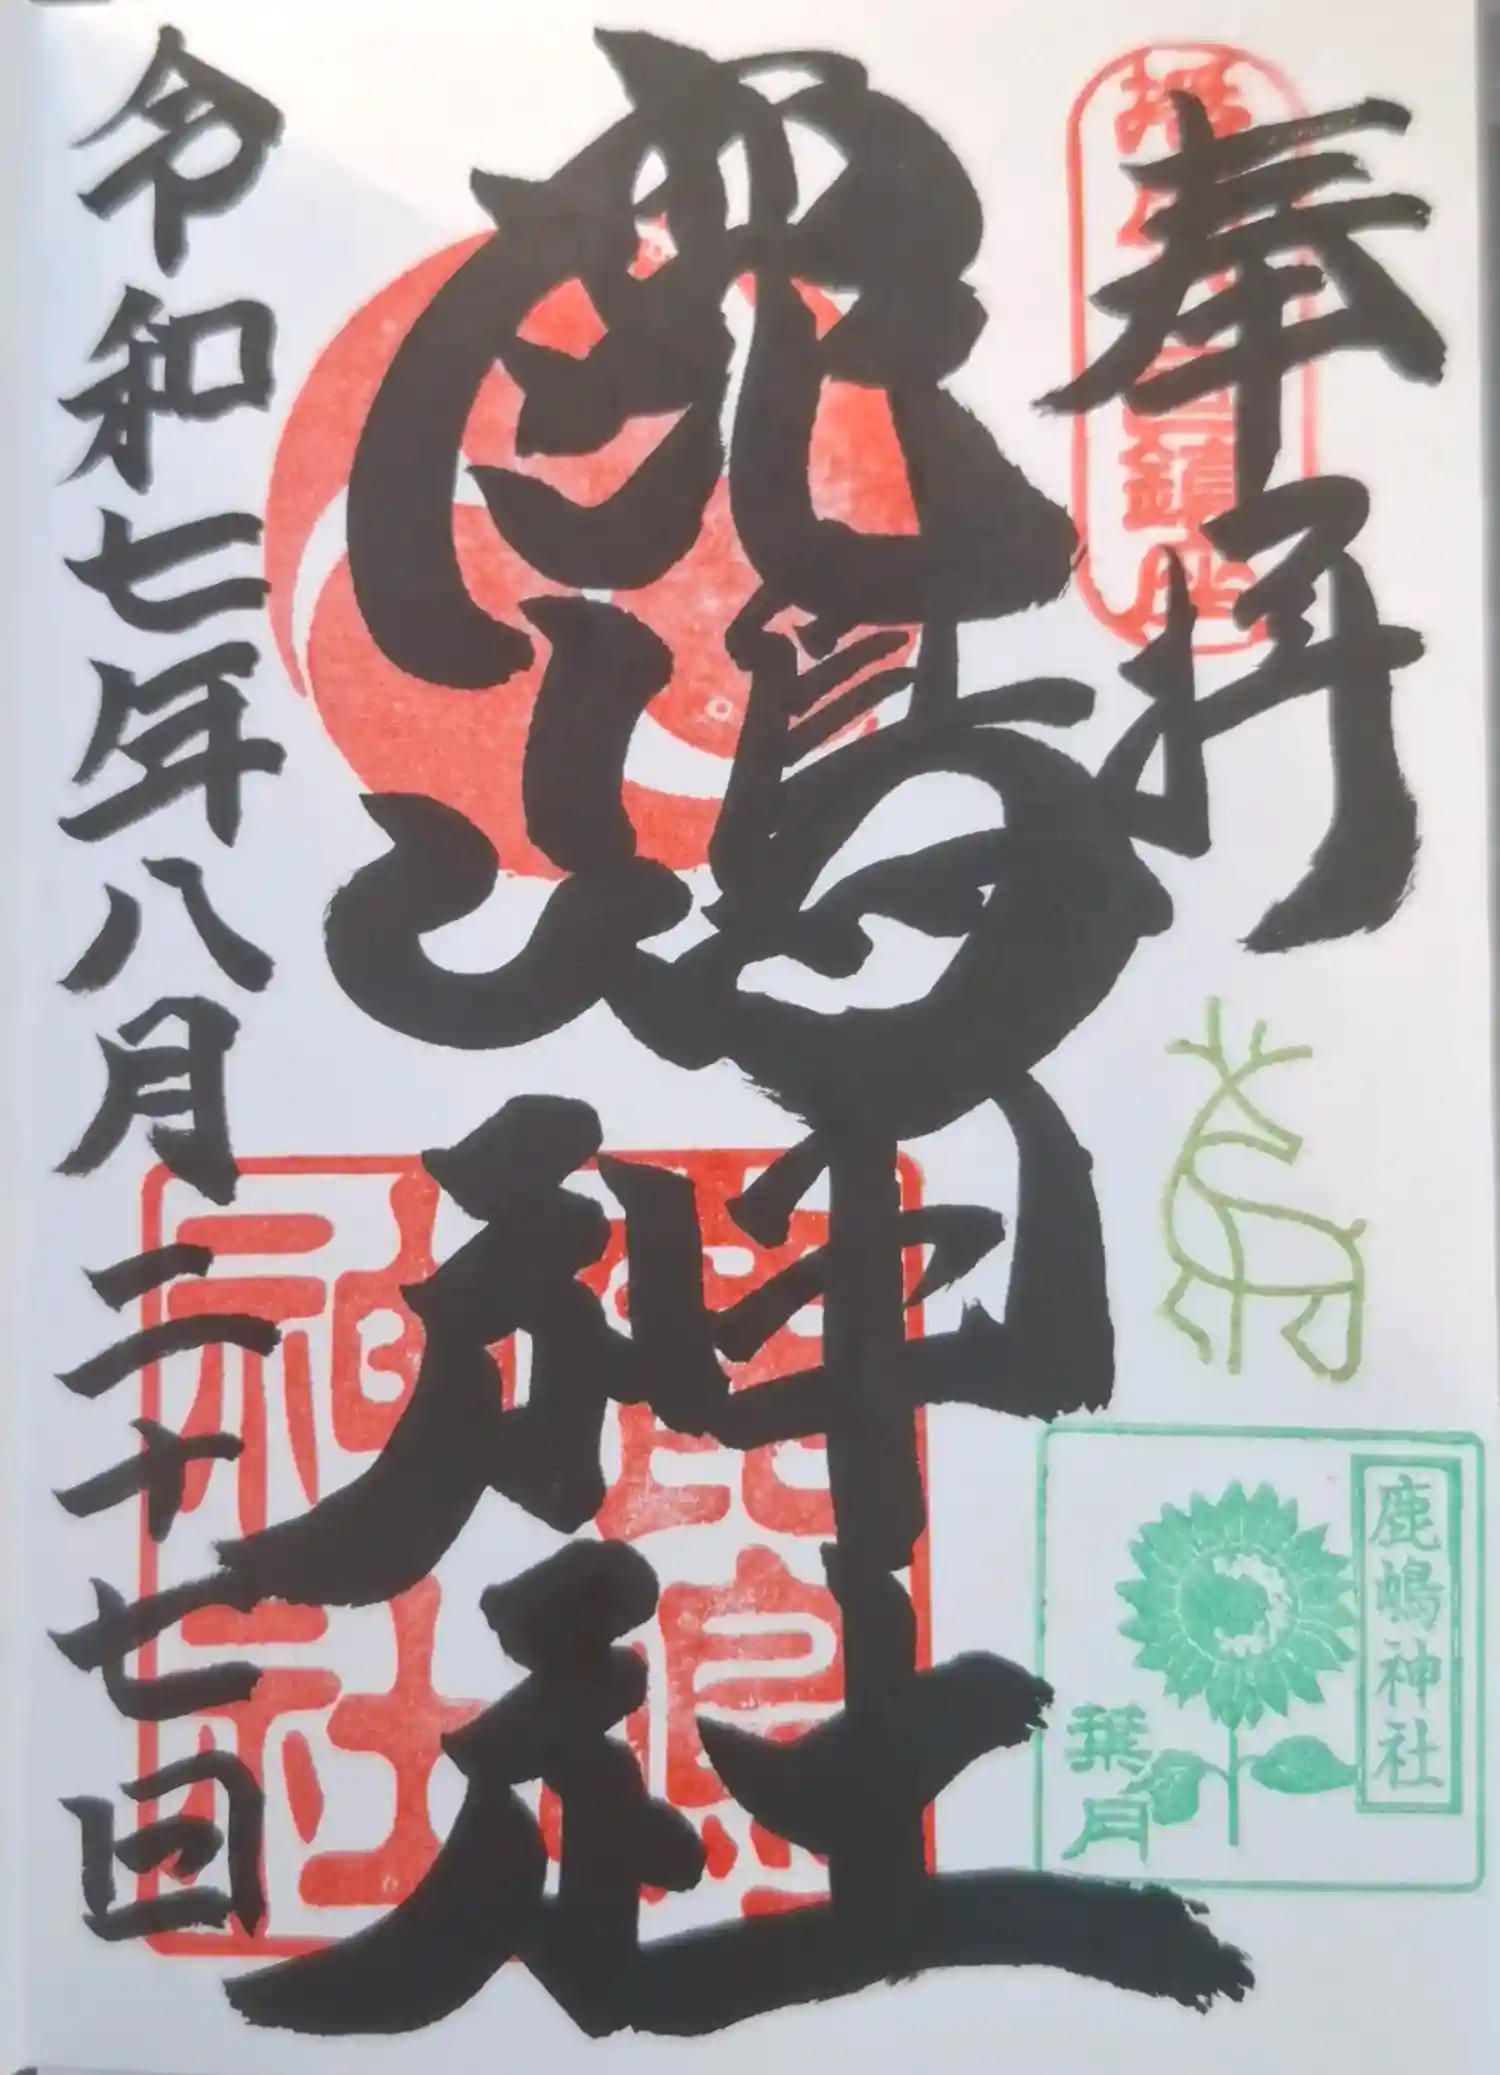 奉拝
鹿嶋神社
令和七年八月二十七日
鹿嶋神社
葉月